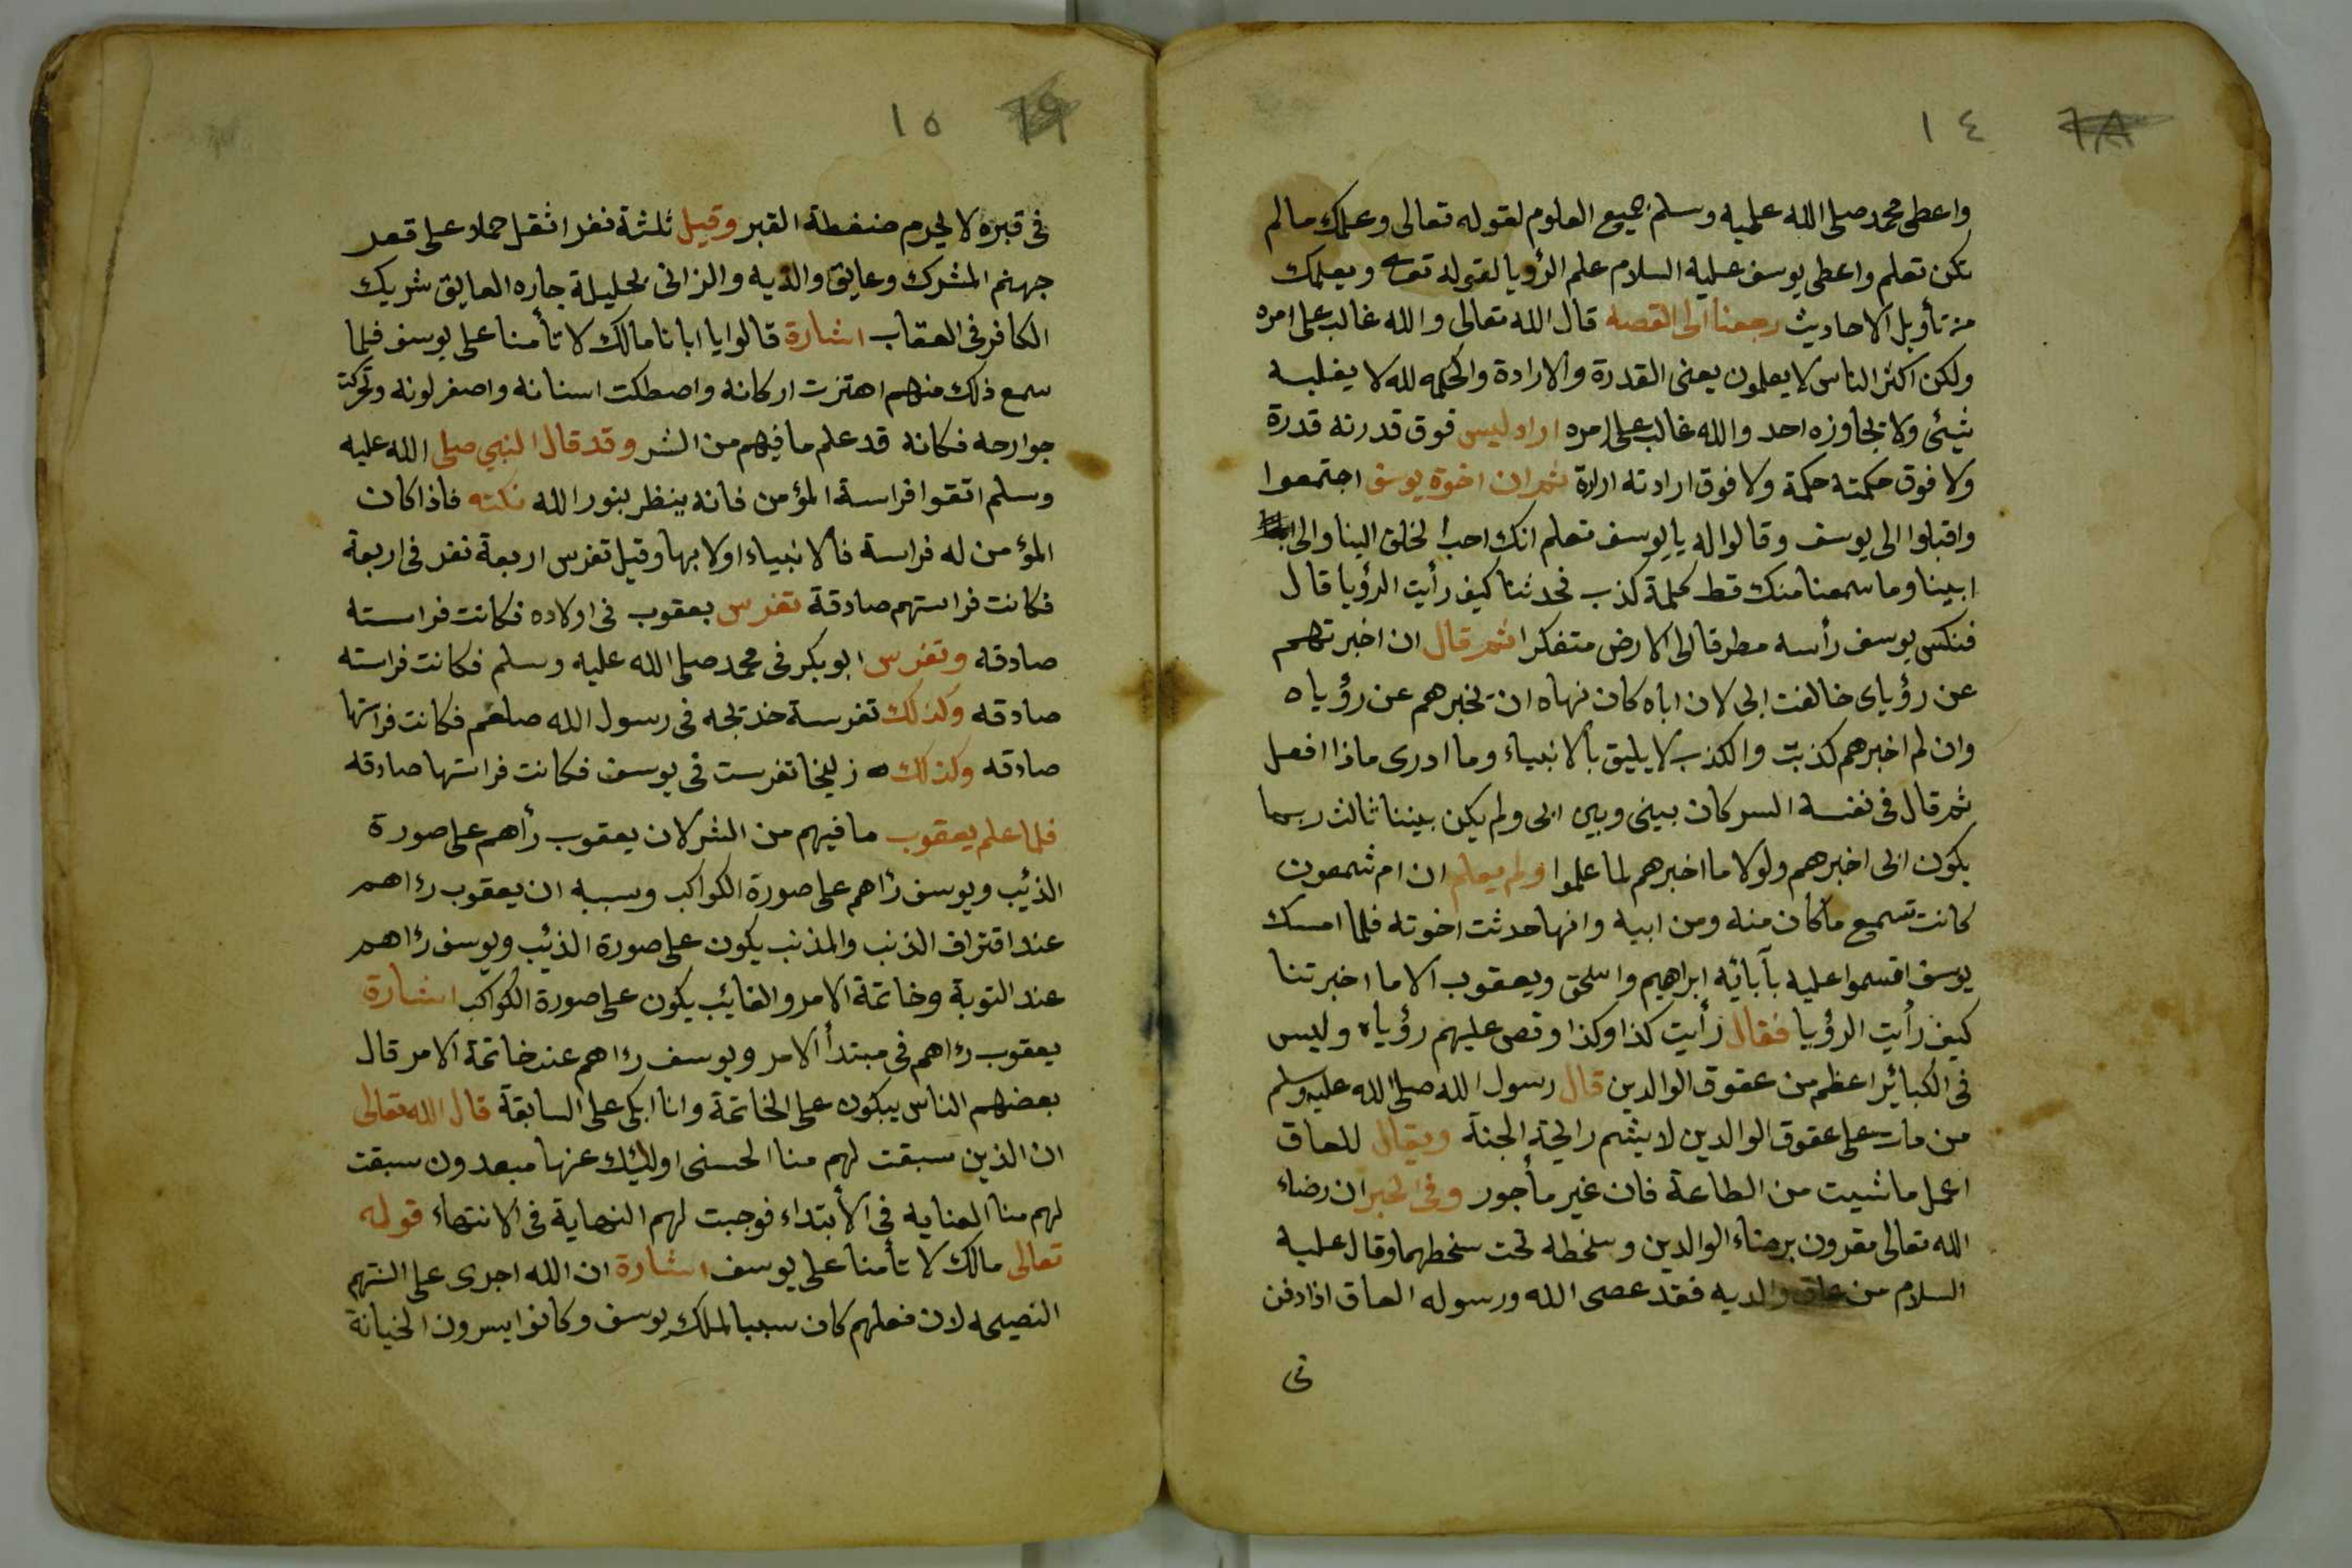 ١٤
واعطى محمد صلى الله عليه وسلم جميع العلوم لقوله تعالى وعلمك مالم
تكن تعلم واعطى يوسف عليه السلام علم الرؤيا لقوله تعا ويعلمك
من تأويل الاحاديث رجعنا الى القصه قال الله تعالى والله غالب على امره
ولكن اكثر الناس لا يعلمون يعنى القدرة والارادة والحكمه لله لا يغلبه
شيئ ولا يجاوزه احد والله غالب على امره اراد ليس فوق قدرته قدرة
ولا فوق حكمته حكمة ولا فوق ارادته ارادة ثم ان اخوة يوسف اجتمعوا
واقبلوا الى يوسف وقالوا له يا يوسف تعلم انك احب الخلق الينا والى
ابينا وما سمعنا منك قط كلمة كذب فحدثنا كيف رأيت الرؤيا قال
فنكس يوسف رأسه مطرقا الى الارض متفكرا ثم قال ان اخبرتهم
عن رؤياى خالفت ابى لان اباه كان نهاه ان يخبرهم عن رؤياه
وان لم اخبرهم كذبت والكذب لا يليق بالانبياء وما ادرى ماذا افعل
ثم قال فى نفسه السر كان بينى وبين ابى ولم يكن بيننا ثالث ربما
يكون ابى اخبرهم ولولا ما اخبرهم لما علموا ولم يعلم ان ام شمعون
كانت تسمع ما كان منه ومن ابيه وانها حدثت اخوته فلما امسك
يوسف اقسموا عليه بآبائه ابراهيم واسحق ويعقوب الا ما اخبرتنا
كيف رأيت الرؤيا فقال رأيت كذا وكذا وقص عليهم رؤياه وليس
فى الكبائر اعظم من عقوق الوالدين قال رسول الله صلى الله عليه وسلم
من مات على عقوق الوالدين لا يشم رايحة الجنة ويقال للعاق
اعمل ما شيت من الطاعة فان غير مأجور وفى الخبر ان رضاء
الله تعالى مقرون برضاء الوالدين وسخطه تحت سخطهما وقال عليه
السلام من عاق والديه فقد عصى الله ورسوله العاق اذا دفن
فى
١٥
فى قبره لا يحرم ضغطة القبر وقيل ثلثة نفر اثقل حملا على قعر
جهنم المشرك وعايق والديه والزانى بحليلة جاره العايق شريك
الكافر فى العقاب اشارة قالوا يا ابانا مالك لا تأمنا على يوسف فلما
سمع ذلك منهم اهتزت اركانه واصطكت اسنانه واصفر لونه وتحركت
جوارحه فكانه قد علم ما فيهم من الشر وقد قال النبي صلى الله عليه
وسلم اتقوا فراسة المؤمن فانه ينظر بنور الله نكته فاذا كان
المؤمن له فراسة فالانبياء اولا بها وقيل تفرس اربعة نفر فى اربعة
فكانت فراستهم صادقة تفرس يعقوب فى اولاده فكانت فراسته
صادقه وتفرس ابو بكر فى محمد صلى الله عليه وسلم فكانت فراسته
صادقه وكذلك تفرسة خديجه فى رسول الله صلعم فكانت فراستها
صادقه وكذلك زليخا تفرست فى يوسف فكانت فراستها صادقه
فلما علم يعقوب ما فيهم من الشر لان يعقوب رأهم على صورة
الذئب ويوسف رأهم على صورة الكواكب وسببه ان يعقوب رءاهم
عند اقتراف الذنب والمذنب يكون على صورة الذئب ويوسف رءاهم
عند التوبة وخاتمة الامر والتايب يكون على صورة الكواكب اشارة
يعقوب رءاهم فى مبتدأ الامر ويوسف رءاهم عند خاتمة الامر قال
بعضهم الناس يبكون على الخاتمة وانا ابكى على السابقة قال الله تعالى
ان الذين سبقت لهم منا الحسنى اوليك عنها مبعدون سبقت
لهم منا العنايه فى الأبتداء فوجبت لهم النهاية فى الانتهاء قوله
تعالى مالك لا تأمنا على يوسف اشارة ان الله اجرى على السنتهم
النصيحه لان فعلهم كان سببا لملك يوسف وكانوا يسرون الخيانة